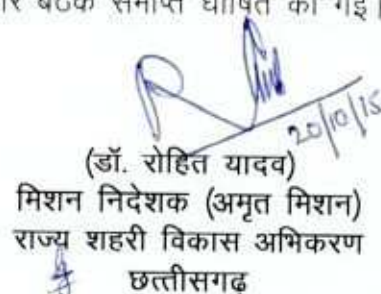 बैठक समाप्त घोषित की गई।
20/10/15
(डॉ. रोहित यादव)
मिशन निदेशक (अमृत मिशन)
राज्य शहरी विकास अभिकरण
छत्तीसगढ़